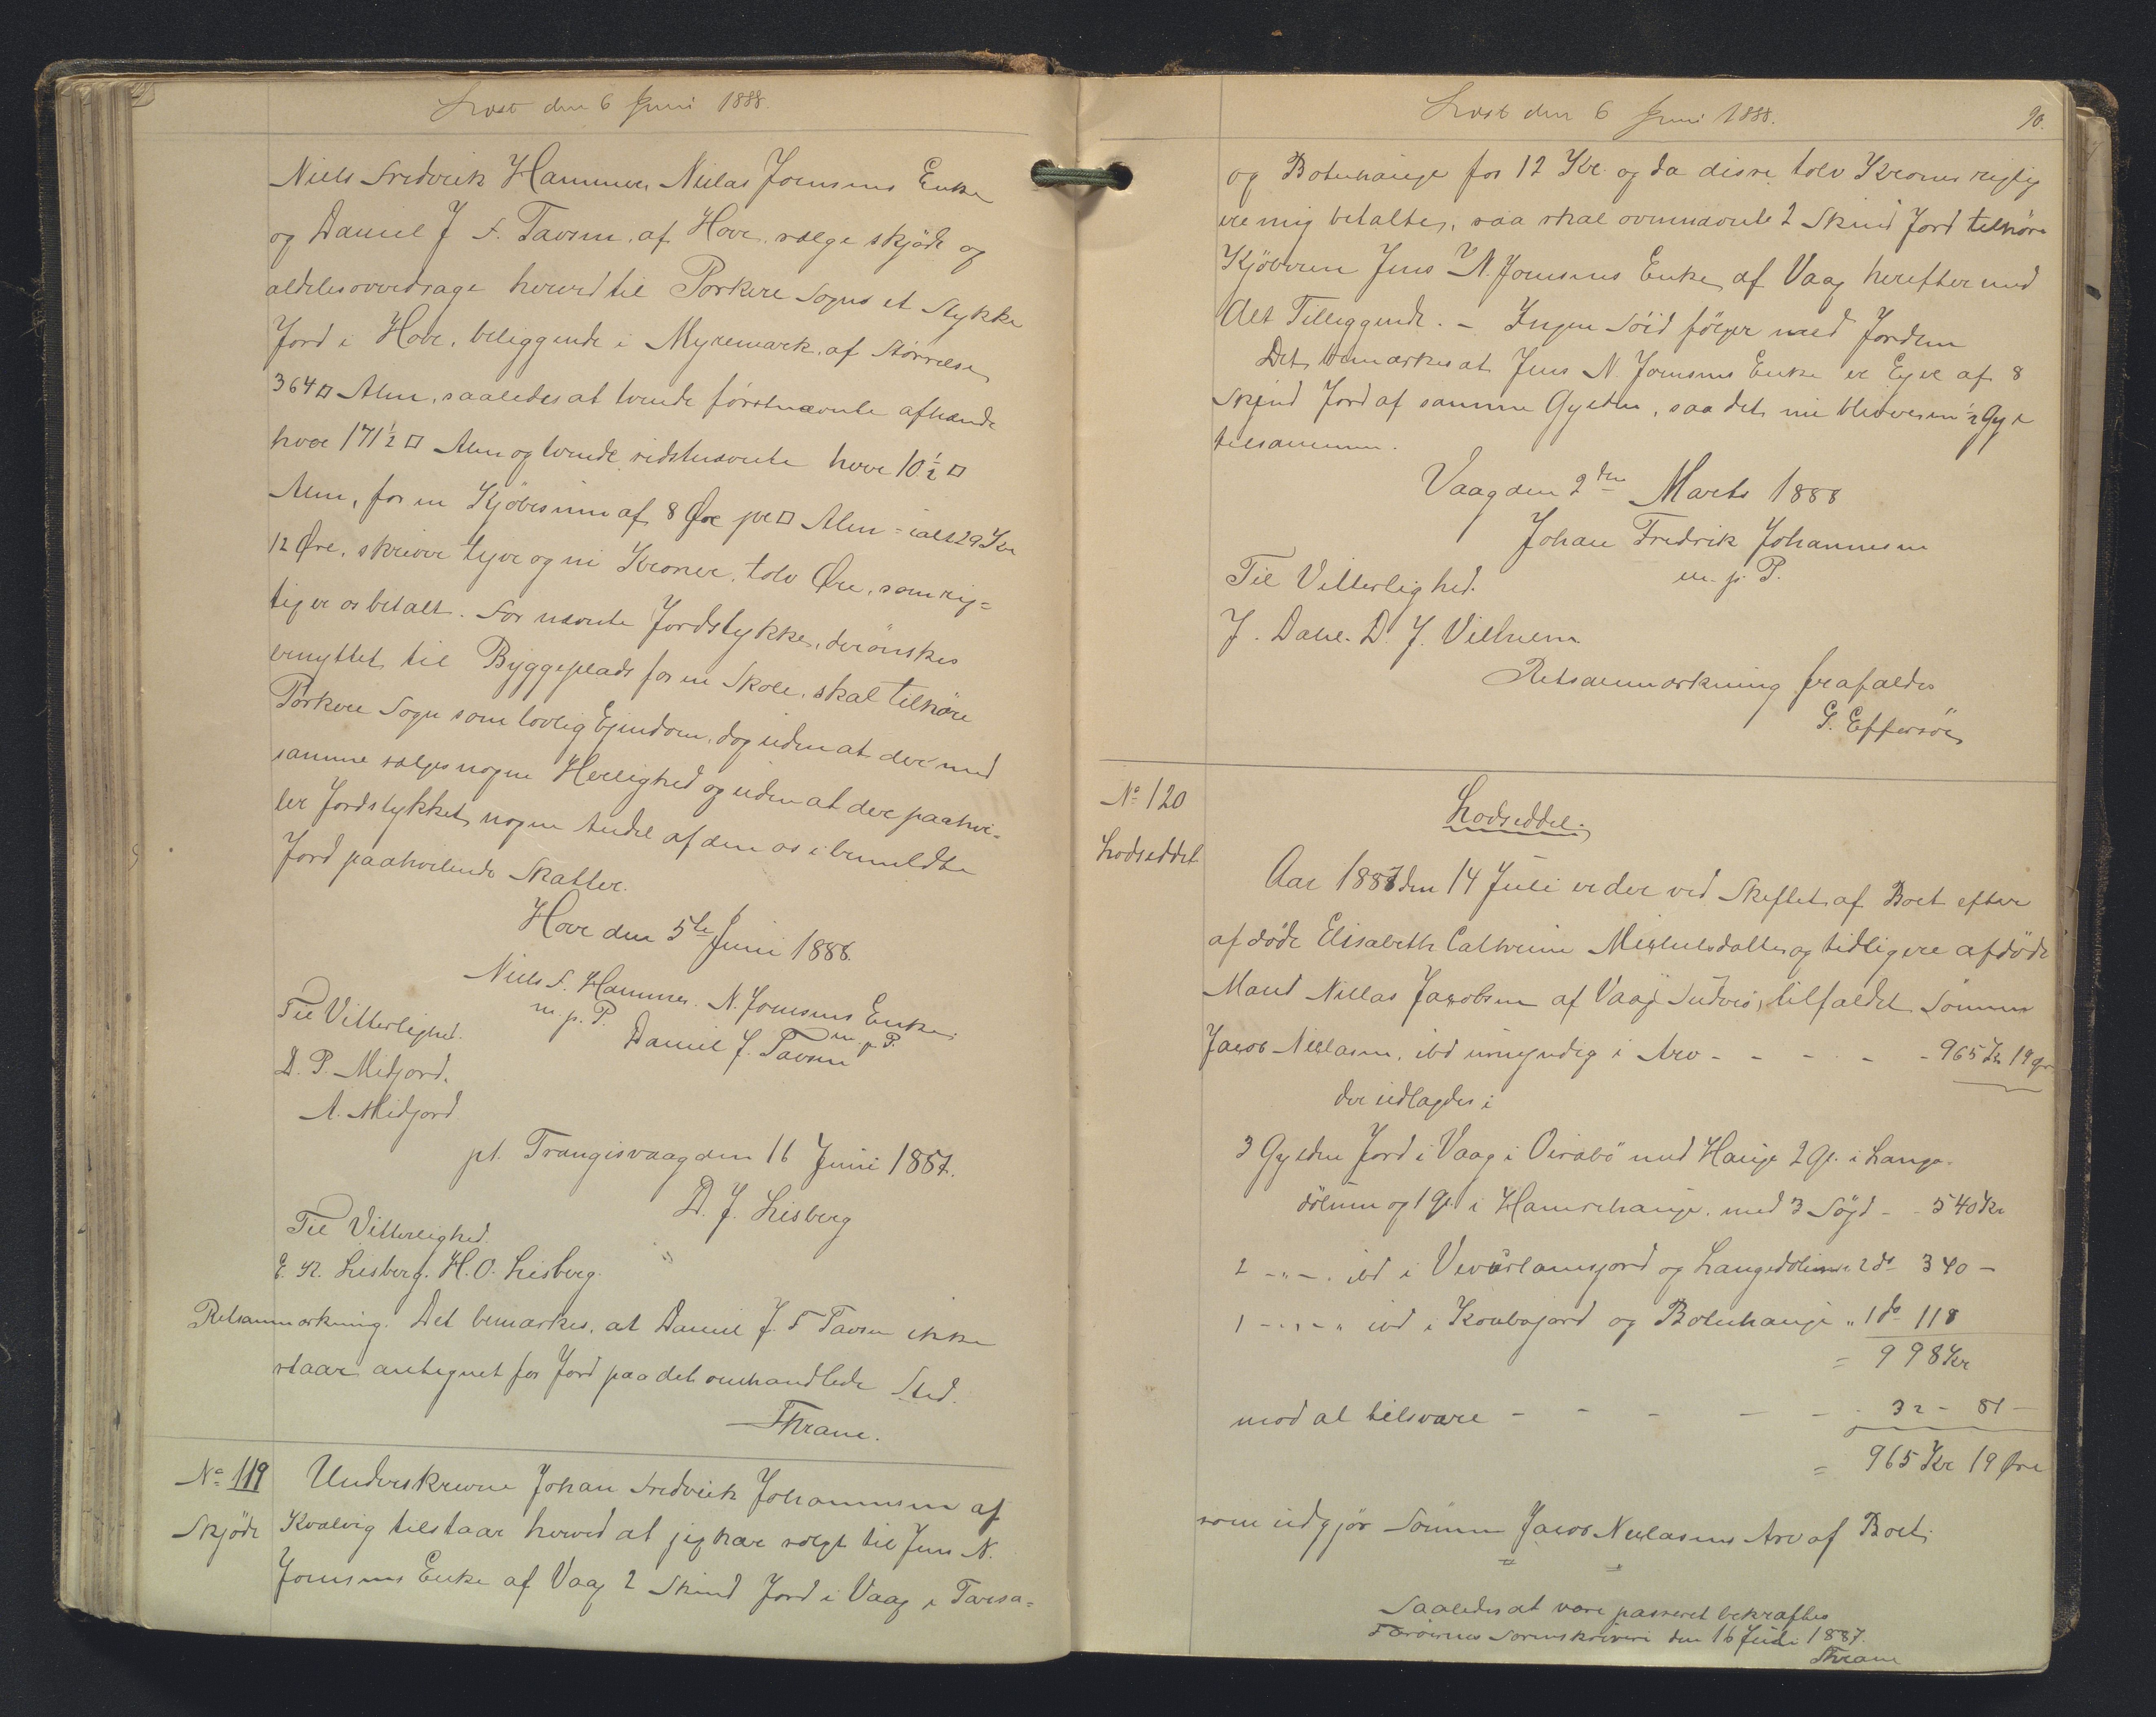 Læst den 6 Juni 1888.
Niels Fredrik Hammer, Niclas Joensens Enke
og Daniel J. F. Tavsen, af Hove, sælge skjøde og
aldeles overdrage herved til Porkere Sogns et Stykke
Jord i Hove, beliggende i Myremark, af Størrelse
364 □ Alen, saaledes at tvende førstnævnte afhænde
hver 171½ □ Alen og tvende sidstnævnte hver 10½ □
Alen, for en Kjøbesum af 8 Øre pr □ Alen = ialt 29 Kr
12 Øre, skriver tyve og ni Kroner, tolv Øre, som rig=
tig er os betalt. For nævnte Jordstykke, der ønskes
benyttet til Byggeplads for en Skole, skal tilhøre
Porkere Sogn som lovlig Ejendom, dog uden at der med
samme sælges nogen Herlighed og uden at der paahvi=
ler Jordstykket nogen Andel af den os i bemeldte
Jord paahvilende Skatter.
Hove den 5te Juni 1888.
Niels F. Hammer. N. Joensens Enke
m. p. P. m. p. P.
Daniel J. Tavsen
Til Vitterlighed.
D. P. Midjord.
A. Midjord.
pt. Trangisvaag den 16 Juni 1887.
D. J. Lisberg
Til Vitterlighed.
E. N. Lisberg. H. O. Lisberg.
Retsanmærkning. Det bemærkes, at Daniel J. F Tavsen ikke
staar antegnet for Jord paa det omhandlede Sted.
Thrane.
No 119
Skjøde
Underskrevne Johan Fredrik Johannesen af
Kvalvig tilstaar herved at jeg har solgt til Jens N.
Joensens Enke af Vaag 2 Skind Jord i Vaag i Tarsa=
Læst den 6 Juni 1888.
90.
og Botnhauge for 12 Kr. og da disse tolv Kroner rigtig
ere mig betalte, saa skal ovennævnte 2 Skind Jord tilhøre
Kjøberen Jens N. Joensens Enke af Vaag herefter med
Alt Tilliggende. – Ingen Söid følger med Jorden
Det bemærkes at Jens N. Joensens Enke er Ejer af 8
Skind Jord af samme Gylden, saa det nu bliver en ½ Gyl
tilsammen.
Vaag den 2den Marts 1888
Johan Fredrik Johannesen
m. p. P.
Til Vitterlighed.
J. Dahl. D. J. Vilhelm
Retsanmærkning frafaldes
G. Effersöe
No 120
Lodseddel
Lodseddel.
Aar 1887 den 14 Juli er der ved Skiftet af Boet efter
afdøde Elisabeth Cathrine Mikkelsdatter og tidligere afdøde
Mand Niclas Jacobsen af Vaag Suderø, tilfaldet Sønnen
Jacob Niclasen, ibd umyndig i Arv - - - - - 965 Kr 19 Ør
der udlagdes i
3 Gylden Jord i Vaag i Öirabö med Hauge 2 Gl. i Lange-
dölum og 1 Gl. i Hamrehauge, med 3 Søjd - - 540 Kr
2 - „ - ibd i Verurlamsjord og Langedölum 2 do 340 -
1 - „ - „ ibd i Koubajord og Botnhauge „ 1 do 118
= 998 Kr
mod at tilsvare - - - - - 32 - 81 -
= 965 Kr 19 Øre
som udgjør Sønnen Jacob Niclasens Arv af Boet.
Saaledes at være passeret bekræftes
Færøernes Sorenskriveri den 16 Juli 1887.
Thrane